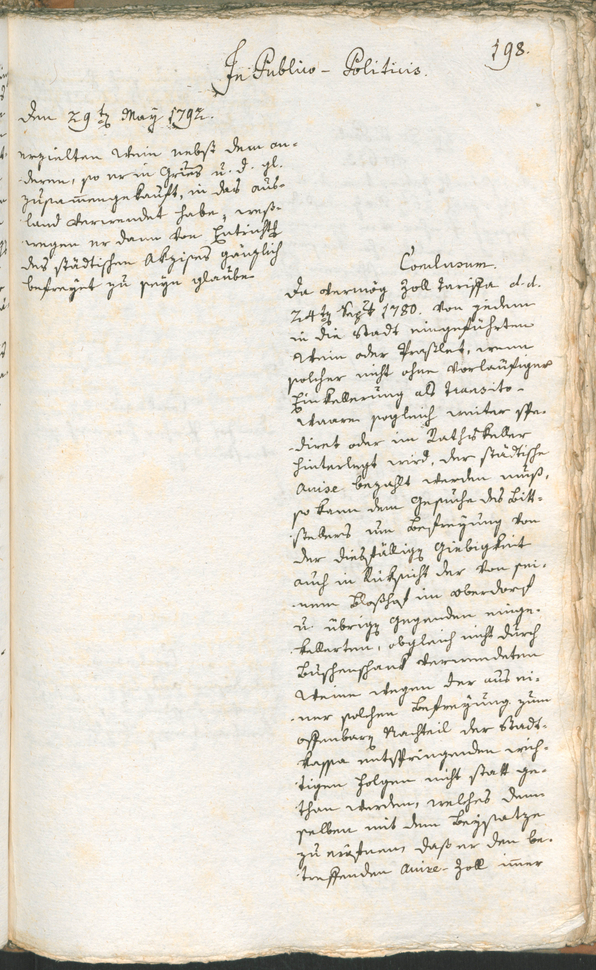 198.
In Publico - Politicis.
Den 29ten May 1792.
erzielten Wein nebst dem an-
deren, so er in Gries u. d. gl.
zusammengekauft, in das aus-
land verwendet habe, weß-
wegen er dann von Entricht
des städtischen Akzises gänzlich
befreyet zu seyn glaube
Conclusum.
Da vermög Zoll Tariffa d. d.
24ten Sept 1780. von jedem
in die Stadt eingeführten
Wein oder Praßlet, wenn
solcher nicht ohne vorläufiger
Einkellerung als Transito-
waare sogleich weiter spe-
diret oder im Rathskeller
hinterlegt wird, der städtische
Accise bezahlt werden muß,
so kann dem Gesuche des Bitt-
stellers um Befreyung von
der diesfällig Giebigkeit
auch in Rüksicht der von sei-
nem Bloßhof im Oberdorf
u. übrig gegenden einge-
kellerten, obgleich nicht durch
Buschenschank verwendeten
Weine wegen der aus ei-
ner solchen Befreyung zum
offenbaren Nachteil der Stadt-
kassa entspringenden wich-
tigen Folgen nicht statt ge-
than werden, welches dem
selben mit dem Beysatze
zu eröfnen, daß er den be-
treffenden Accise-Zoll immer